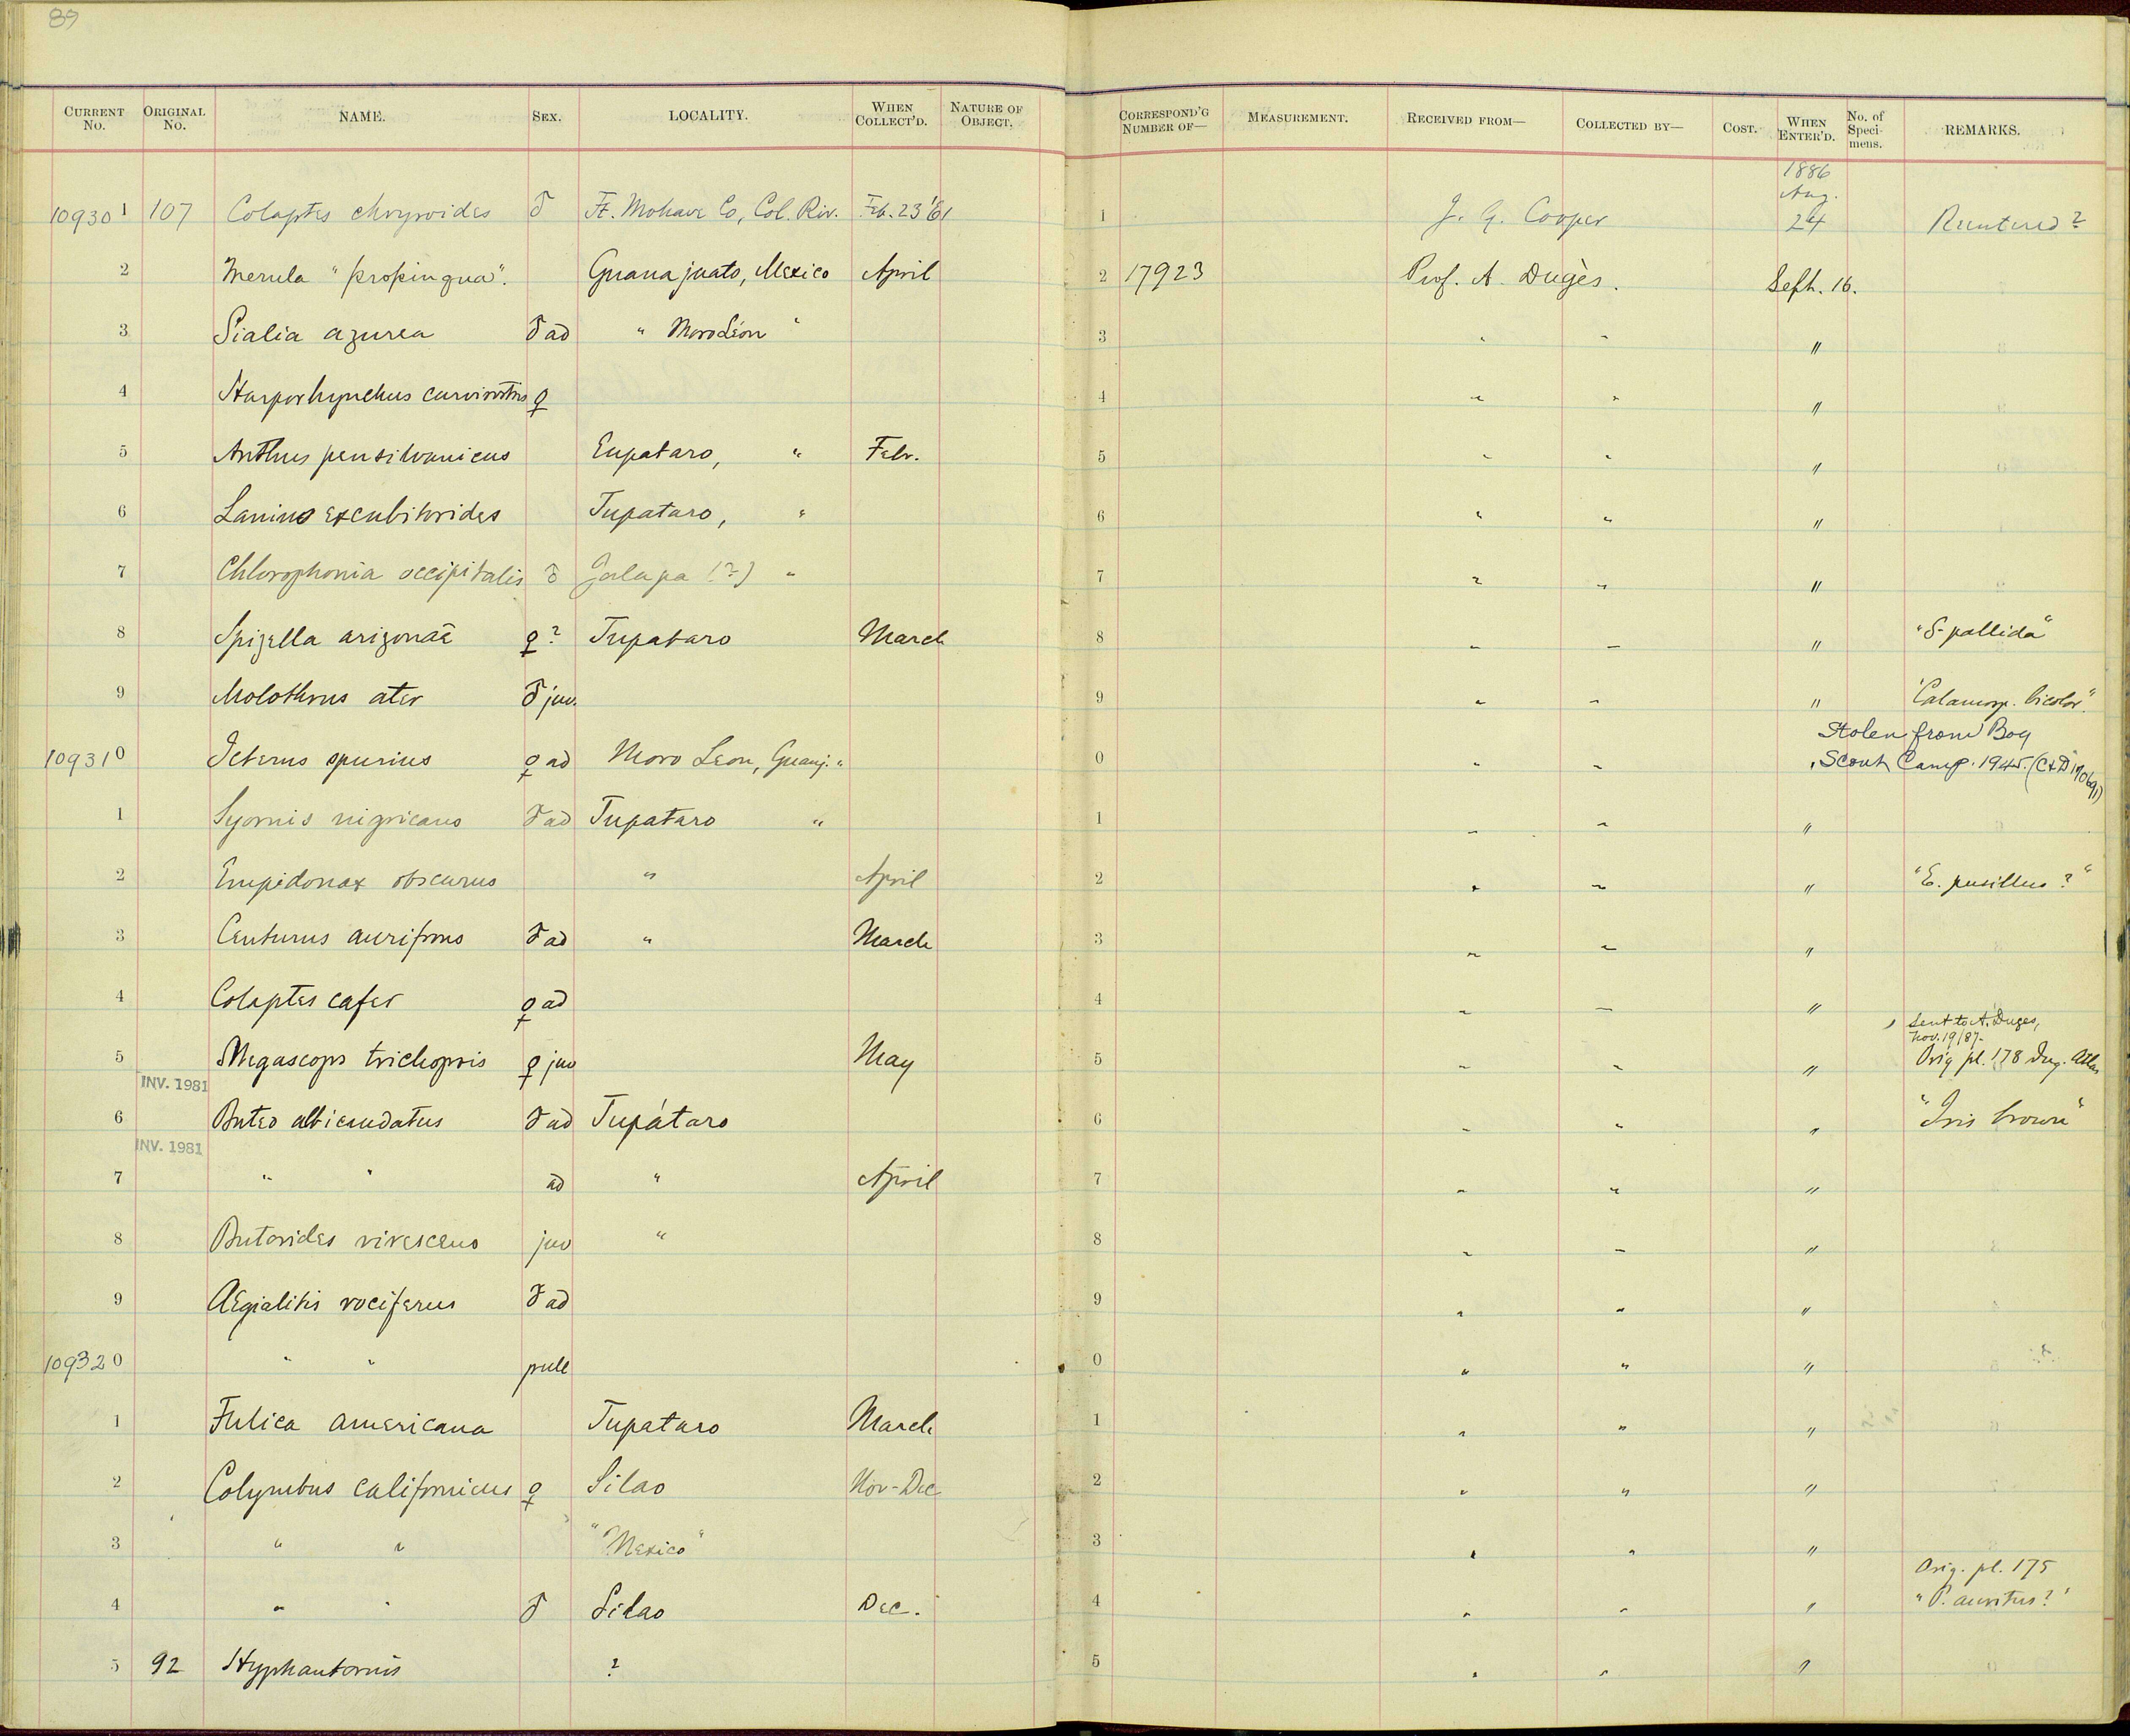 89
CURRENT No. ORIGINAL No. NAME. SEX. LOCALITY. WHEN COLLECT'D. NATURE OF OBJECT. CORRESPOND'G NUMBER OF— MEASUREMENT. RECEIVED FROM— COLLECTED BY— COST. WHEN ENTER'D. No. of Speci-mens. REMARKS.
1886
Aug.
109301 107 Colaptes chrysoides ♂ Ft. Mohave Co, Col. Riv. Feb. 23 '61 1 J. G. Cooper 24 Reentered?
2 Merula "propinqua". Guanajuato, Mexico April 2 17923 Prof. A. Dugès. Sept. 16.
3 Sialia azurea ♂ ad " Moro Léon " 3 " " "
4 Harporhynchus curvirostris ♀ 4 " " "
5 Anthus pensilvanicus Eupataro, " Febr. 5 " " "
6 Lanius excubitorides Tupataro, " 6 " " "
7 Chlorophonia occipitalis ♂ Jalapa (?) " 7 " " "
8 Spizella arizonae ♀? Tupataro March 8 " " " "S. pallida"
9 Molothrus ater ♂ juv. 9 " " " "Calamosp. bicolor".
Stolen from Boy
109310 Icterus spurius ♀ ad Moro Leon, Guanj. " 0 " " Scout Camp. 1945. (C&D 170691)
1 Syornis nigricans ♂ ad Tupataro " 1 " " "
2 Empidonax obscurus " April 2 " " " "E. pusillus?"
3 Centurus aurifrons ♂ ad " March 3 " " "
4 Colaptes cafer ♀ ad 4 " " "
Sent to A. Duges,
Nov. 19/87.
5 Megascops trichopsis ♀ juv May 5 " " " Orig pl. 178 Dug. Atlas
INV. 1981
6 Buteo albicaudatus ♂ ad Tupátaro 6 " " " "Iris brown"
INV. 1981
7 " " ad " April 7 " " "
8 Butorides virescens juv " 8 " " "
9 Ægialitis vociferus ♂ ad 9 " " "
109320 " " pull 0 " " "
1 Fulica americana Tupataro March 1 " " "
2 Colymbus californicus ♀ Silao Nov-Dec 2 " " "
3 " " "Mexico" 3 " " "
Orig. pl. 175
4 " " ♂ Silao Dec. 4 " " " "P. auritus?"
5 92 Hyphantornis ? 5 " " "